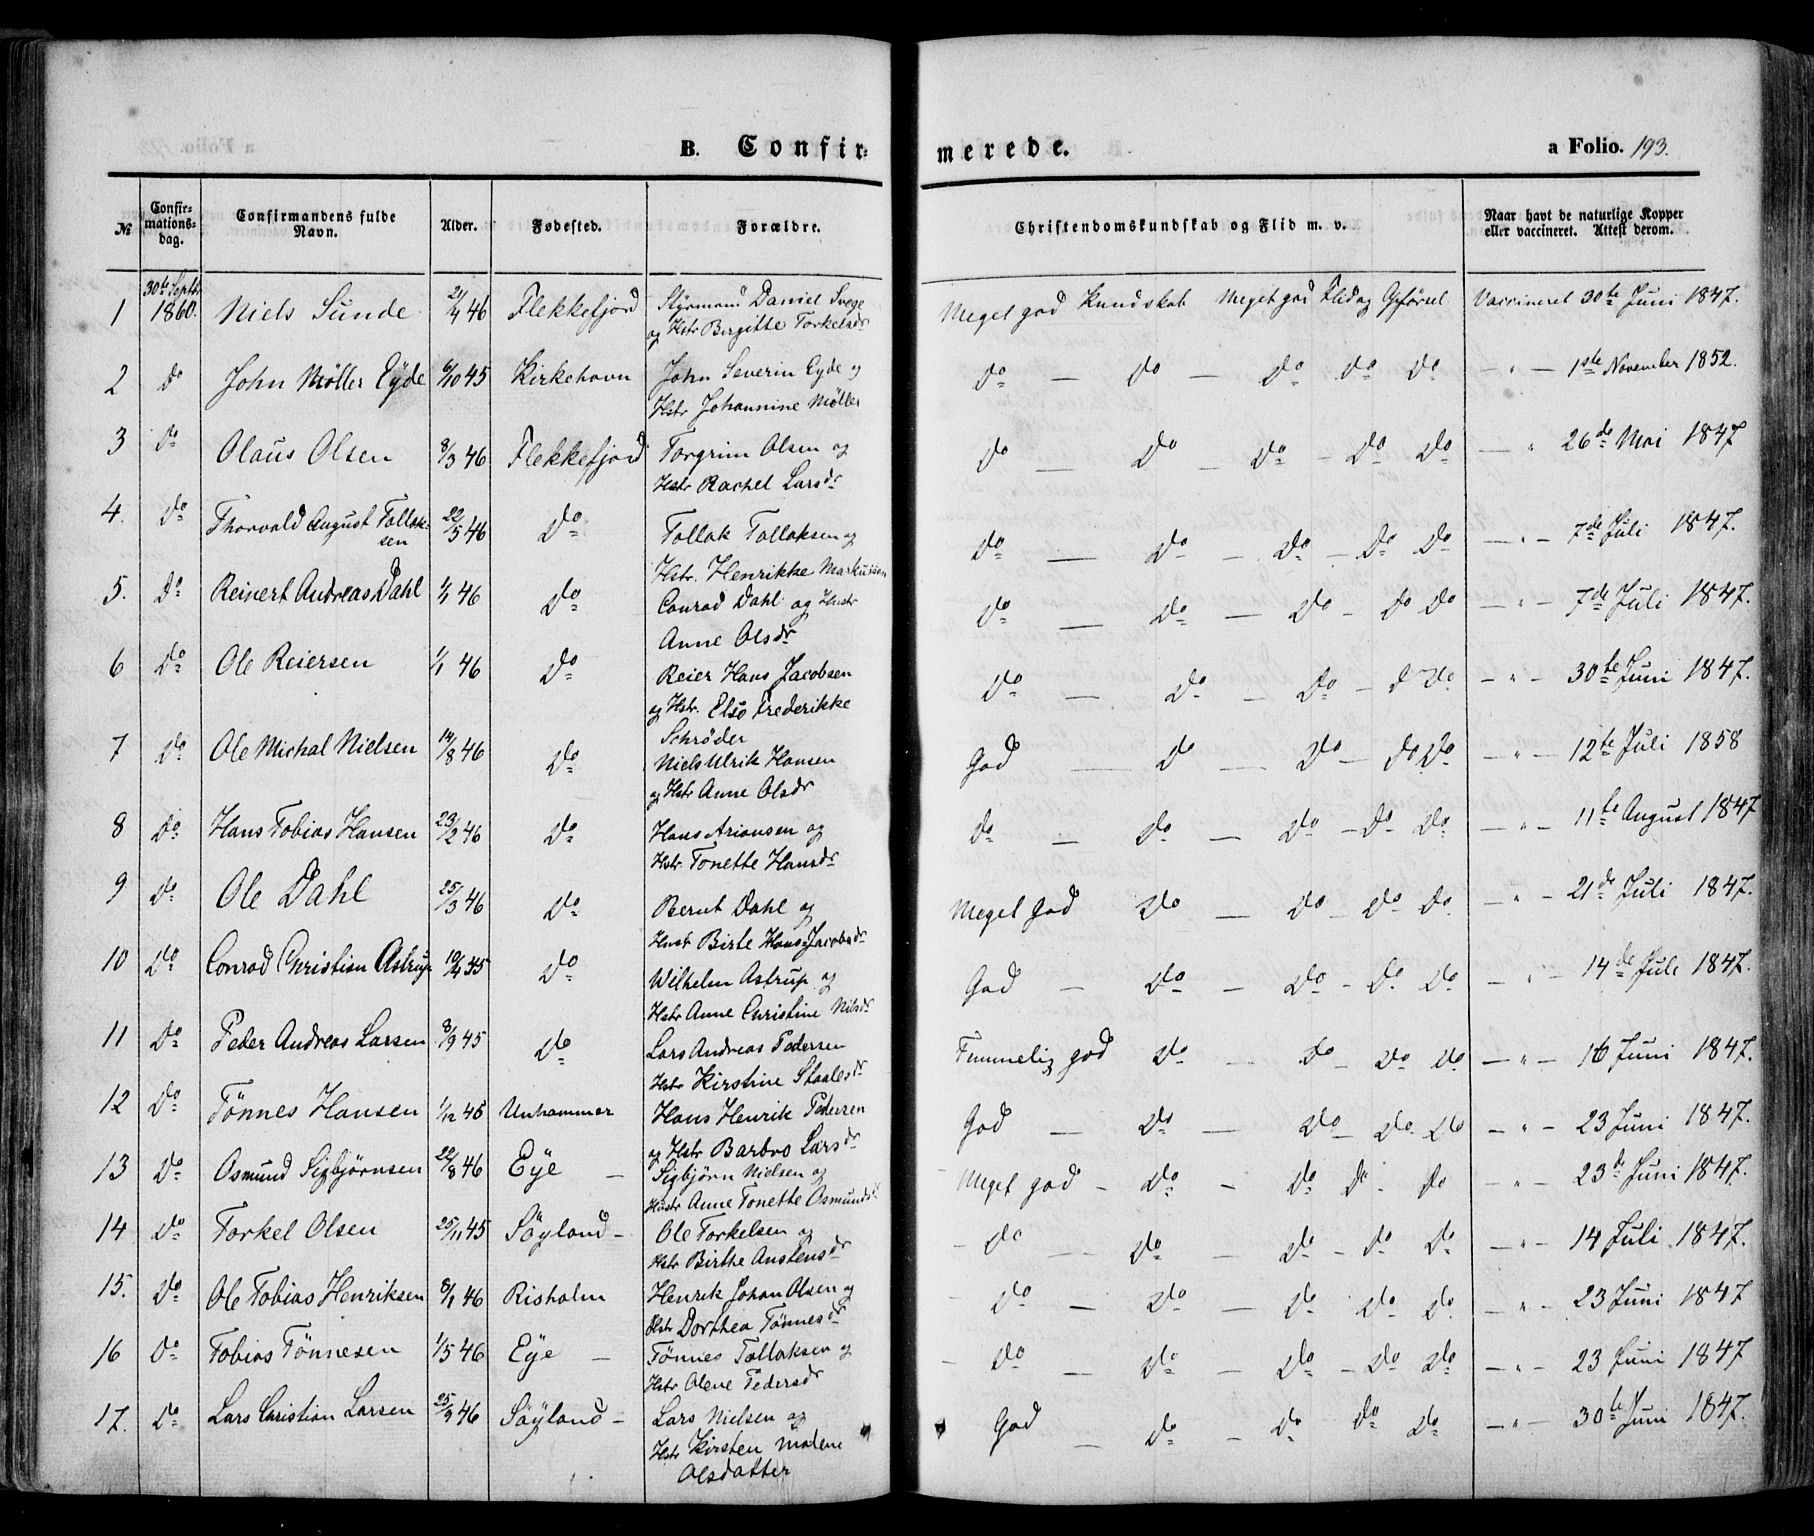 B. Confir= merede. a Folio. 193.
№ Confir=mations=dag. Confirmandens fulde Navn. Alder. Fødested. Forældre. Christendomskundskab og Flid m. v. Naar havt de naturlige Kopper eller vaccineret. Attest derom.
1 30te Septbr 1860. Niels Sunde 46 Flekkefjord Styrmand Daniel Svege Meget god Kundskab Meget god Flid og Opførsel Vaccineret 30te Juni 1847.
og Hstr Birgitte Torkelsdr
2 Do John Møller Eyde 6/10 45 Kirkehavn John Severin Eyde og Do — Do — Do Do Do — " — 1ste November 1852.
Hstr Johannine Møller
3 Do Olaus Olsen 8/3 46 Flekkefjord Torgrim Olsen og Do — Do — Do – Do Do — " 26de Mai 1847
Hstr Rachel Larsdr
4. Do Thorvald August Tollak=sen 22/5 46 Do Tollak Tollaksen og Do — Do — Do – Do Do — " — 7de Juli 1847.
Hstr. Henrikke Markussen
5. Do Reinert Andreas Dahl 1/1 46 Do Conrad Dahl og Hustr Do — Do — Do – Do Do — " — 7de Juli 1847.
Anne Olsdr
6 Do Ole Reiersen 1/1 46 Do Reier Hans Jacobsen Do — Do — Do – Do Do — " — 30te Juni 1847.
og Hstr. Elso Frederikke
Schrøder
7 Do Ole Michal Nielsen 14/8 46 Do Niels Ulrik Hansen God — Do — Do — Do Do — " — 12te Juli 1858
og Hstr Anne Olsdr
8 Do Hans Tobias Hansen 23/2 46 Do Hans Arionsen og Do — Do — Do – Do Do — " — 11te August 1847
Hstr. Tonette Hansdr
9 Do Ole Dahl 25/3 46 Do Bernt Dahl og Meget God Do — Do – Do Do — " — 21de Juli 1847.
Hustr Birte Hans Jacobsdr
10 Do Conrad Christian Astrup 10/4 45 Do Wilhelm Astrup og God — Do — Do – Do Do — " — 14de Juli 1847.
Hstr Anne Christine Nilsdr
11 Do Peder Andreas Larsen 8/9 45 Do Lars Andreas Pedersen Temmelig god Do — Do Do Do — " — 16 Juni 1847.
Hstr Kirstine Staalesdr
12 Do Tönnes Hansen 1/12 45 Unhammer Hans Henrik Pedersen God — Do — Do – Do Do — " — 23 Juni 1847.
og Hstr Barbro Larsdr
13 Do Osmund Sigbjørnsen 22/8 46 Eÿe — Sigbjørn Nielsen og Meget god – Do — Do Do – Do — " — 23de Juni 1847.
Hustr Anne Tonette Osmundsd
14 Do Torkel Olsen 25/11 45 Söyland — Ole Torkelsen og Do — Do — Do – Do Do — " — 14 Juli 1847.
Hstr Birthe Austensdr
15. Do Ole Tobias Henriksen 8/1 46 Risholm Henrik Johan Olsen og Do — Do — Do Do Do. " — 23 Juni 1847
Hstr Dorthea Tönnesdr
16 Do Tobias Tönnesen 1/5 46 Eÿe — Tönnes Tollaksen og Do — Do — Do – Do Do — " — 23 Juni 1847
Hstr Olene Pedersdr
17. Do Lars Christian Larsen 25/3 46 Söyland — Lars Nielsen og God — Do — Do Do Do — " — 30te Juni 1847.
Hstr Kirsten Malene
Olsdatter